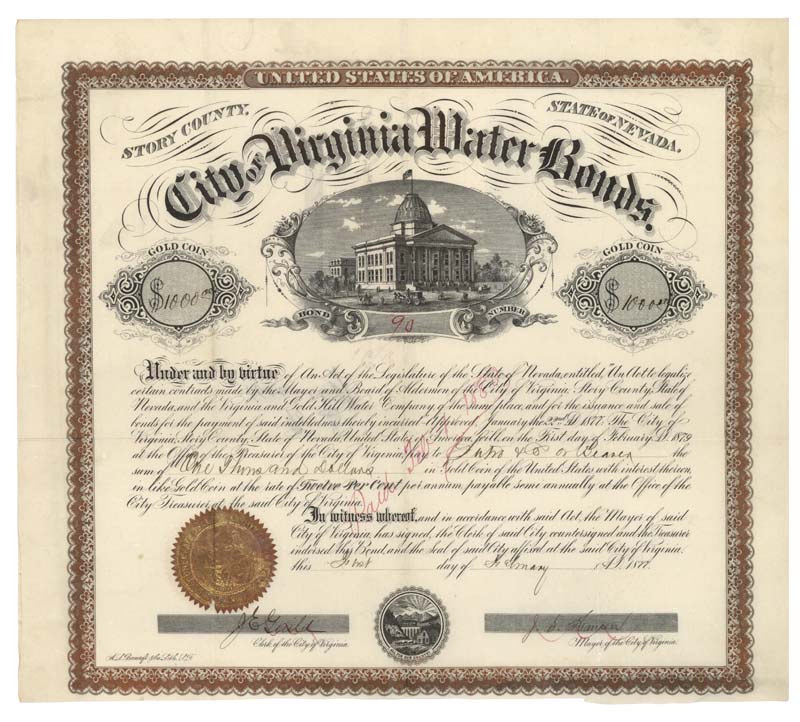 UNITED STATES OF AMERICA.
STORY COUNTY,
STATE OF NEVADA.
City of Virginia Water Bonds.
GOLD COIN
GOLD COIN
$1000.00
$1000.00
BOND
NUMBER
90
Under and by virtue of An Act of the Legislature of the State of Nevada, entitled, An Act to legalize
certain contracts made by the Mayor and Board of Aldermen of the City of Virginia, Story County, State of
Nevada, and the Virginia and Gold Hill Water Company of the same place, and for the issuance and sale of
bonds for the payment of said indebtedness thereby incurred. Approved, January the 22nd A.D. 1877. The City of
Virginia, Story County, State of Nevada, United States of America, will, on the First day of February A.D. 1879
at the Office of the Treasurer of the City of Virginia, pay to Sutro & Co or Bearer the
sum of One Thousand Dollars in Gold Coin of the United States with interest thereon,
in like Gold Coin at the rate of Twelve Per Cent per annum, payable semi annually at the Office of the
City Treasurer, at the said City of Virginia.
Paid
In witness whereof, and in accordance with said Act, the Mayor of said
City of Virginia, has signed, the Clerk of said City countersigned and the Treasurer
indorsed this Bond, and the Seal of said City affixed at the said City of Virginia,
this First day of February A.D. 1877.
Clerk of the City of Virginia.
Mayor of the City of Virginia.